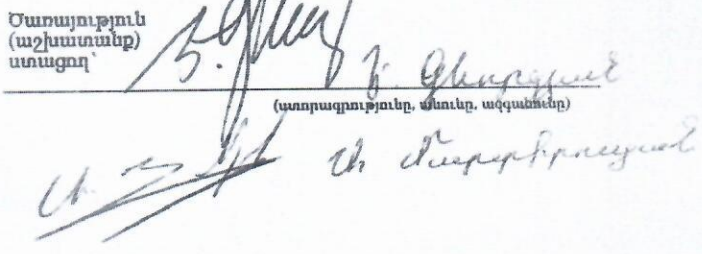 Ծառայություն
(աշխատանք)
ստացող՝
Գևորգյան
(ստորագրությունը, անունը, ազգանունը)
Մարտիրոսյան